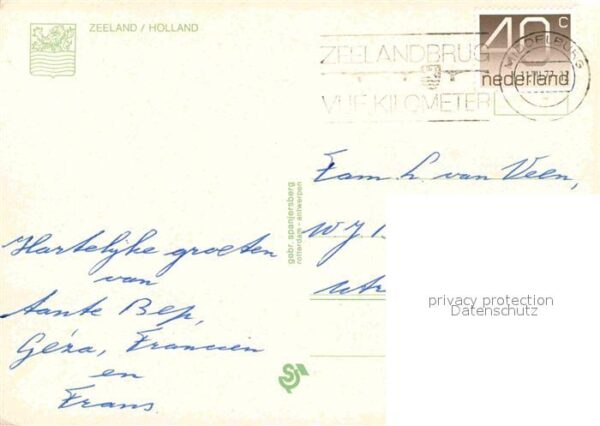 ZEELAND / HOLLAND
40c
nederland
ZEELANDBRUG
VIJF KILOMETER
MIDDELBURG
Fam L. van Veen,
W J
gebr. spanjersberg
rotterdam - antwerpen
Hartelijke groeten
van
tante Bep,
Géza, Francien
en
Frans
privacy protection
Datenschutz